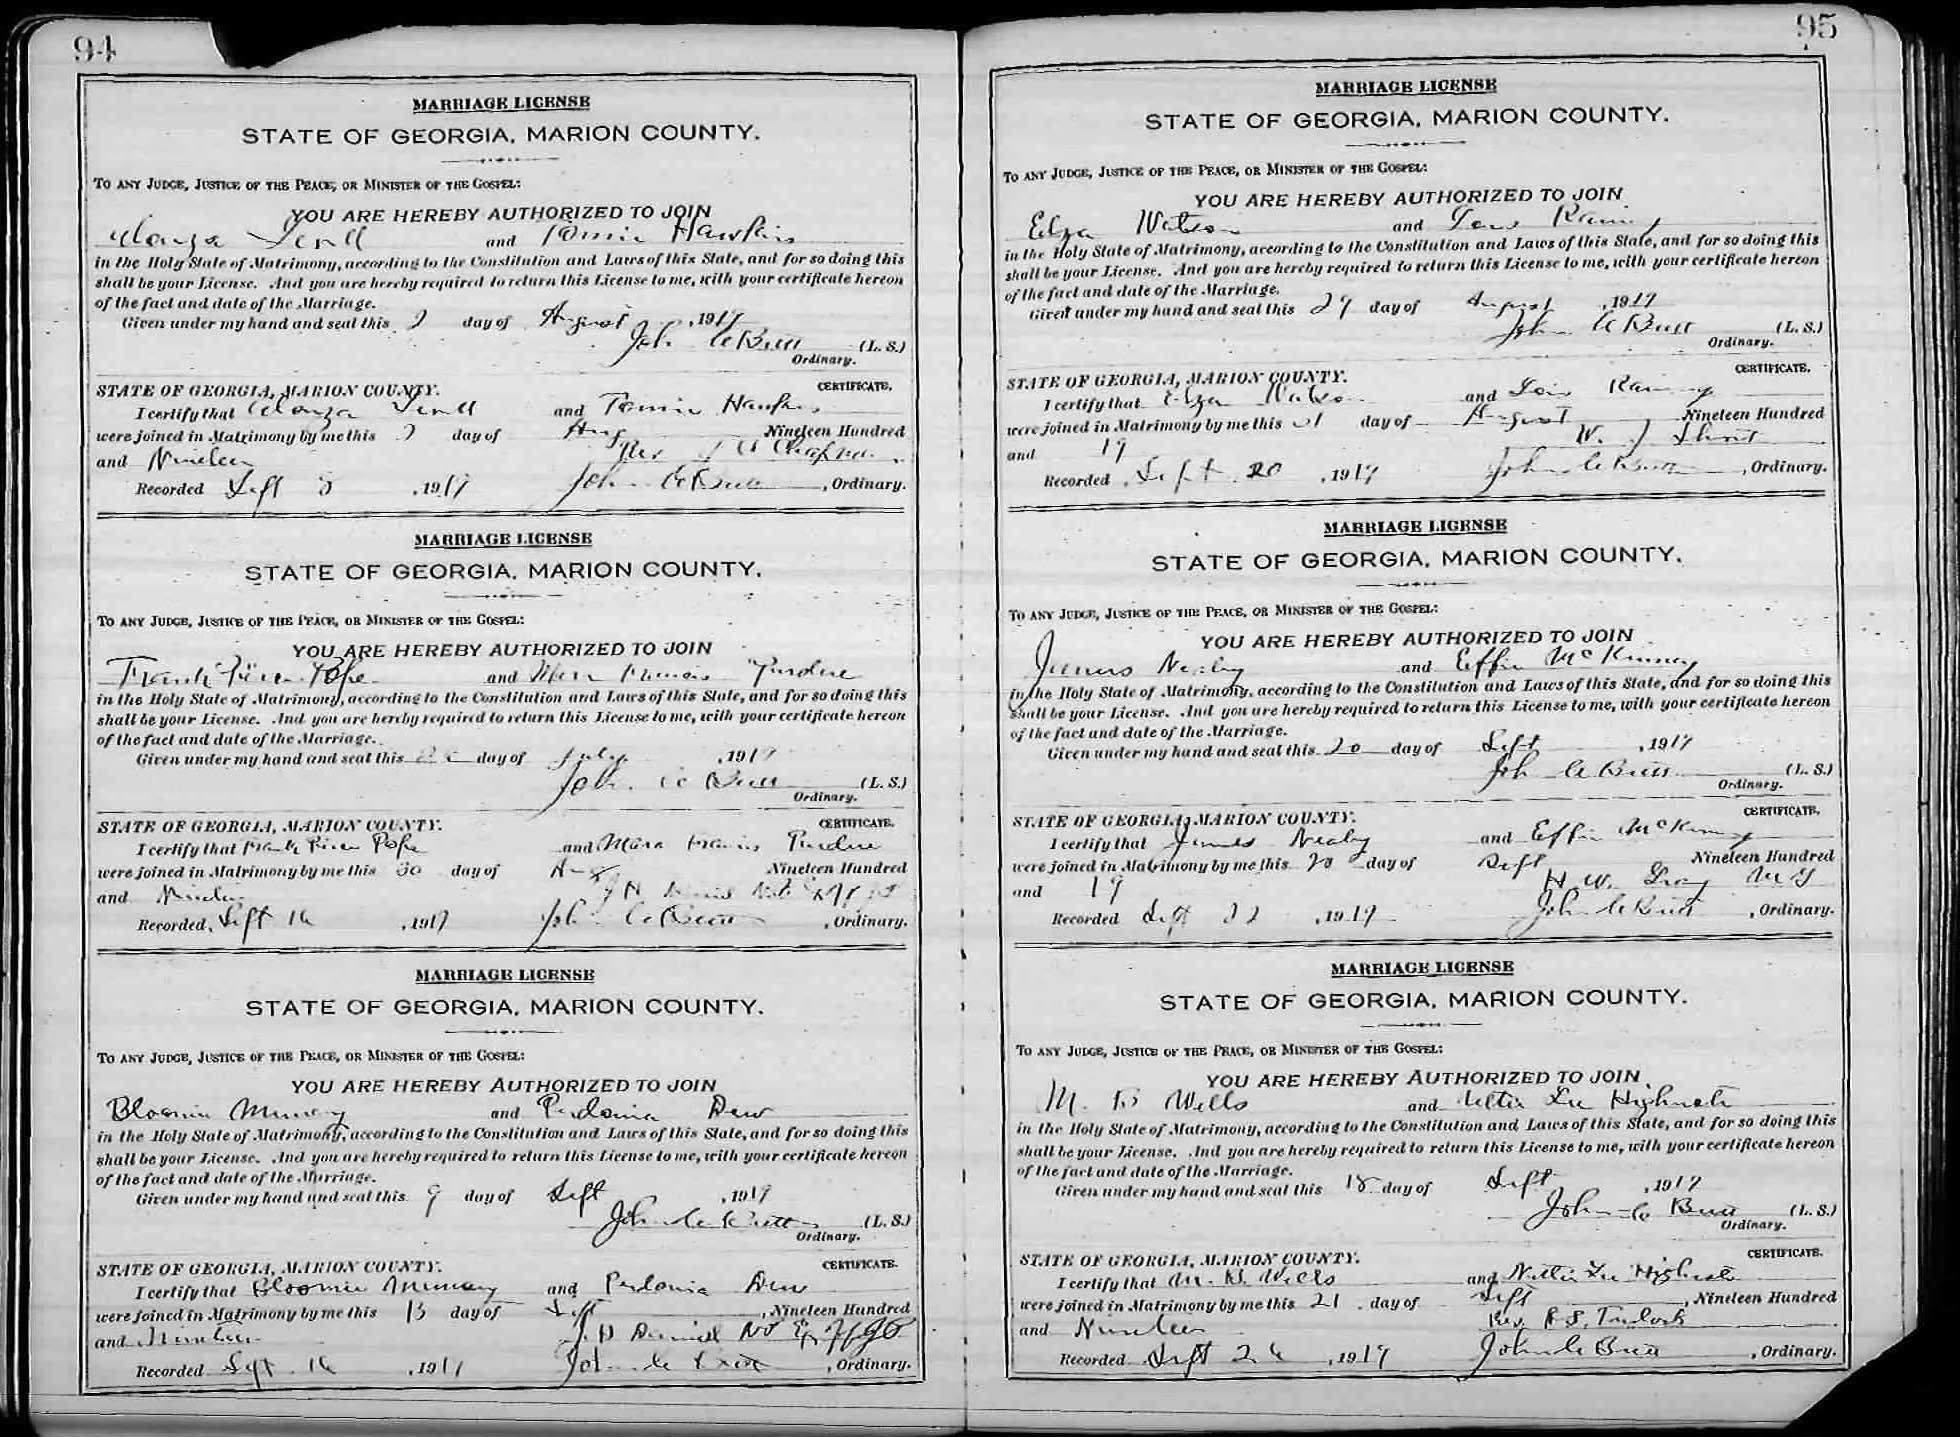 94
MARRIAGE LICENSE
STATE OF GEORGIA, MARION COUNTY.
TO ANY JUDGE, JUSTICE OF THE PEACE, OR MINISTER OF THE GOSPEL:
YOU ARE HEREBY AUTHORIZED TO JOIN
and Tommie Hawkins
in the Holy State of Matrimony, according to the Constitution and Laws of this State, and for so doing this
shall be your License. And you are hereby required to return this License to me, with your certificate hereon
of the fact and date of the Marriage.
Given under my hand and seal this day of August, 1919
John C Butt (L. S.)
Ordinary.
STATE OF GEORGIA, MARION COUNTY. CERTIFICATE.
I certify that and Tommie Hawkins
were joined in Matrimony by me this day of Aug Nineteen Hundred
and Nineteen Rev
Recorded Sept, 1919 John C Butt, Ordinary.
MARRIAGE LICENSE
STATE OF GEORGIA, MARION COUNTY.
TO ANY JUDGE, JUSTICE OF THE PEACE, OR MINISTER OF THE GOSPEL:
YOU ARE HEREBY AUTHORIZED TO JOIN
Frank Pope and Francis Perdue
in the Holy State of Matrimony, according to the Constitution and Laws of this State, and for so doing this
shall be your License. And you are hereby required to return this License to me, with your certificate hereon
of the fact and date of the Marriage.
Given under my hand and seal this day of July, 1919
John C Butt (L. S.)
Ordinary.
STATE OF GEORGIA, MARION COUNTY. CERTIFICATE.
I certify that Frank Pope and Francis Perdue
were joined in Matrimony by me this 30 day of Aug Nineteen Hundred
and Nineteen
Recorded Sept 16, 1919 John C Butt, Ordinary.
MARRIAGE LICENSE
STATE OF GEORGIA, MARION COUNTY.
TO ANY JUDGE, JUSTICE OF THE PEACE, OR MINISTER OF THE GOSPEL:
YOU ARE HEREBY AUTHORIZED TO JOIN
Bloomie Munday and Perdonia Dew
in the Holy State of Matrimony, according to the Constitution and Laws of this State, and for so doing this
shall be your License. And you are hereby required to return this License to me, with your certificate hereon
of the fact and date of the Marriage.
Given under my hand and seal this 9 day of Sept, 1919
John C Butt (L. S.)
Ordinary.
STATE OF GEORGIA, MARION COUNTY. CERTIFICATE.
I certify that Bloomie and Perdonia Dew
were joined in Matrimony by me this 13 day of Sept, Nineteen Hundred
and Nineteen
Recorded Sept 16, 191 John C Butt, Ordinary.
95
MARRIAGE LICENSE
STATE OF GEORGIA, MARION COUNTY.
TO ANY JUDGE, JUSTICE OF THE PEACE, OR MINISTER OF THE GOSPEL:
YOU ARE HEREBY AUTHORIZED TO JOIN
Elza Watson and Lois Rainey
in the Holy State of Matrimony, according to the Constitution and Laws of this State, and for so doing this
shall be your License. And you are hereby required to return this License to me, with your certificate hereon
of the fact and date of the Marriage.
Given under my hand and seal this 29 day of August, 1919
John C Butt (L. S.)
Ordinary.
STATE OF GEORGIA, MARION COUNTY. CERTIFICATE.
I certify that Elza Watson and Lois Rainey
were joined in Matrimony by me this 31 day of August Nineteen Hundred
and 19 W. J
Recorded Sept 20, 1919 John C Butt, Ordinary.
MARRIAGE LICENSE
STATE OF GEORGIA, MARION COUNTY.
TO ANY JUDGE, JUSTICE OF THE PEACE, OR MINISTER OF THE GOSPEL:
YOU ARE HEREBY AUTHORIZED TO JOIN
James Nealy and Effie McKinney
in the Holy State of Matrimony, according to the Constitution and Laws of this State, and for so doing this
shall be your License. And you are hereby required to return this License to me, with your certificate hereon
of the fact and date of the Marriage.
Given under my hand and seal this 20 day of Sept, 1919
John C Butt (L. S.)
Ordinary.
STATE OF GEORGIA, MARION COUNTY. CERTIFICATE.
I certify that James Nealy and Effie McKinney
were joined in Matrimony by me this 20 day of Sept Nineteen Hundred
and 19 H. W.
Recorded Sept 22, 1919 John C Butt, Ordinary.
MARRIAGE LICENSE
STATE OF GEORGIA, MARION COUNTY.
TO ANY JUDGE, JUSTICE OF THE PEACE, OR MINISTER OF THE GOSPEL:
YOU ARE HEREBY AUTHORIZED TO JOIN
M. B Wells and Nettie Lee Highnote
in the Holy State of Matrimony, according to the Constitution and Laws of this State, and for so doing this
shall be your License. And you are hereby required to return this License to me, with your certificate hereon
of the fact and date of the Marriage.
Given under my hand and seal this 18 day of Sept, 1919
John C Butt (L. S.)
Ordinary.
STATE OF GEORGIA, MARION COUNTY. CERTIFICATE.
I certify that M. B. Wells and Nettie Lee Highnote
were joined in Matrimony by me this 21 day of Sept, Nineteen Hundred
and Nineteen Rev.
Recorded Sept 26, 1919 John C Butt, Ordinary.